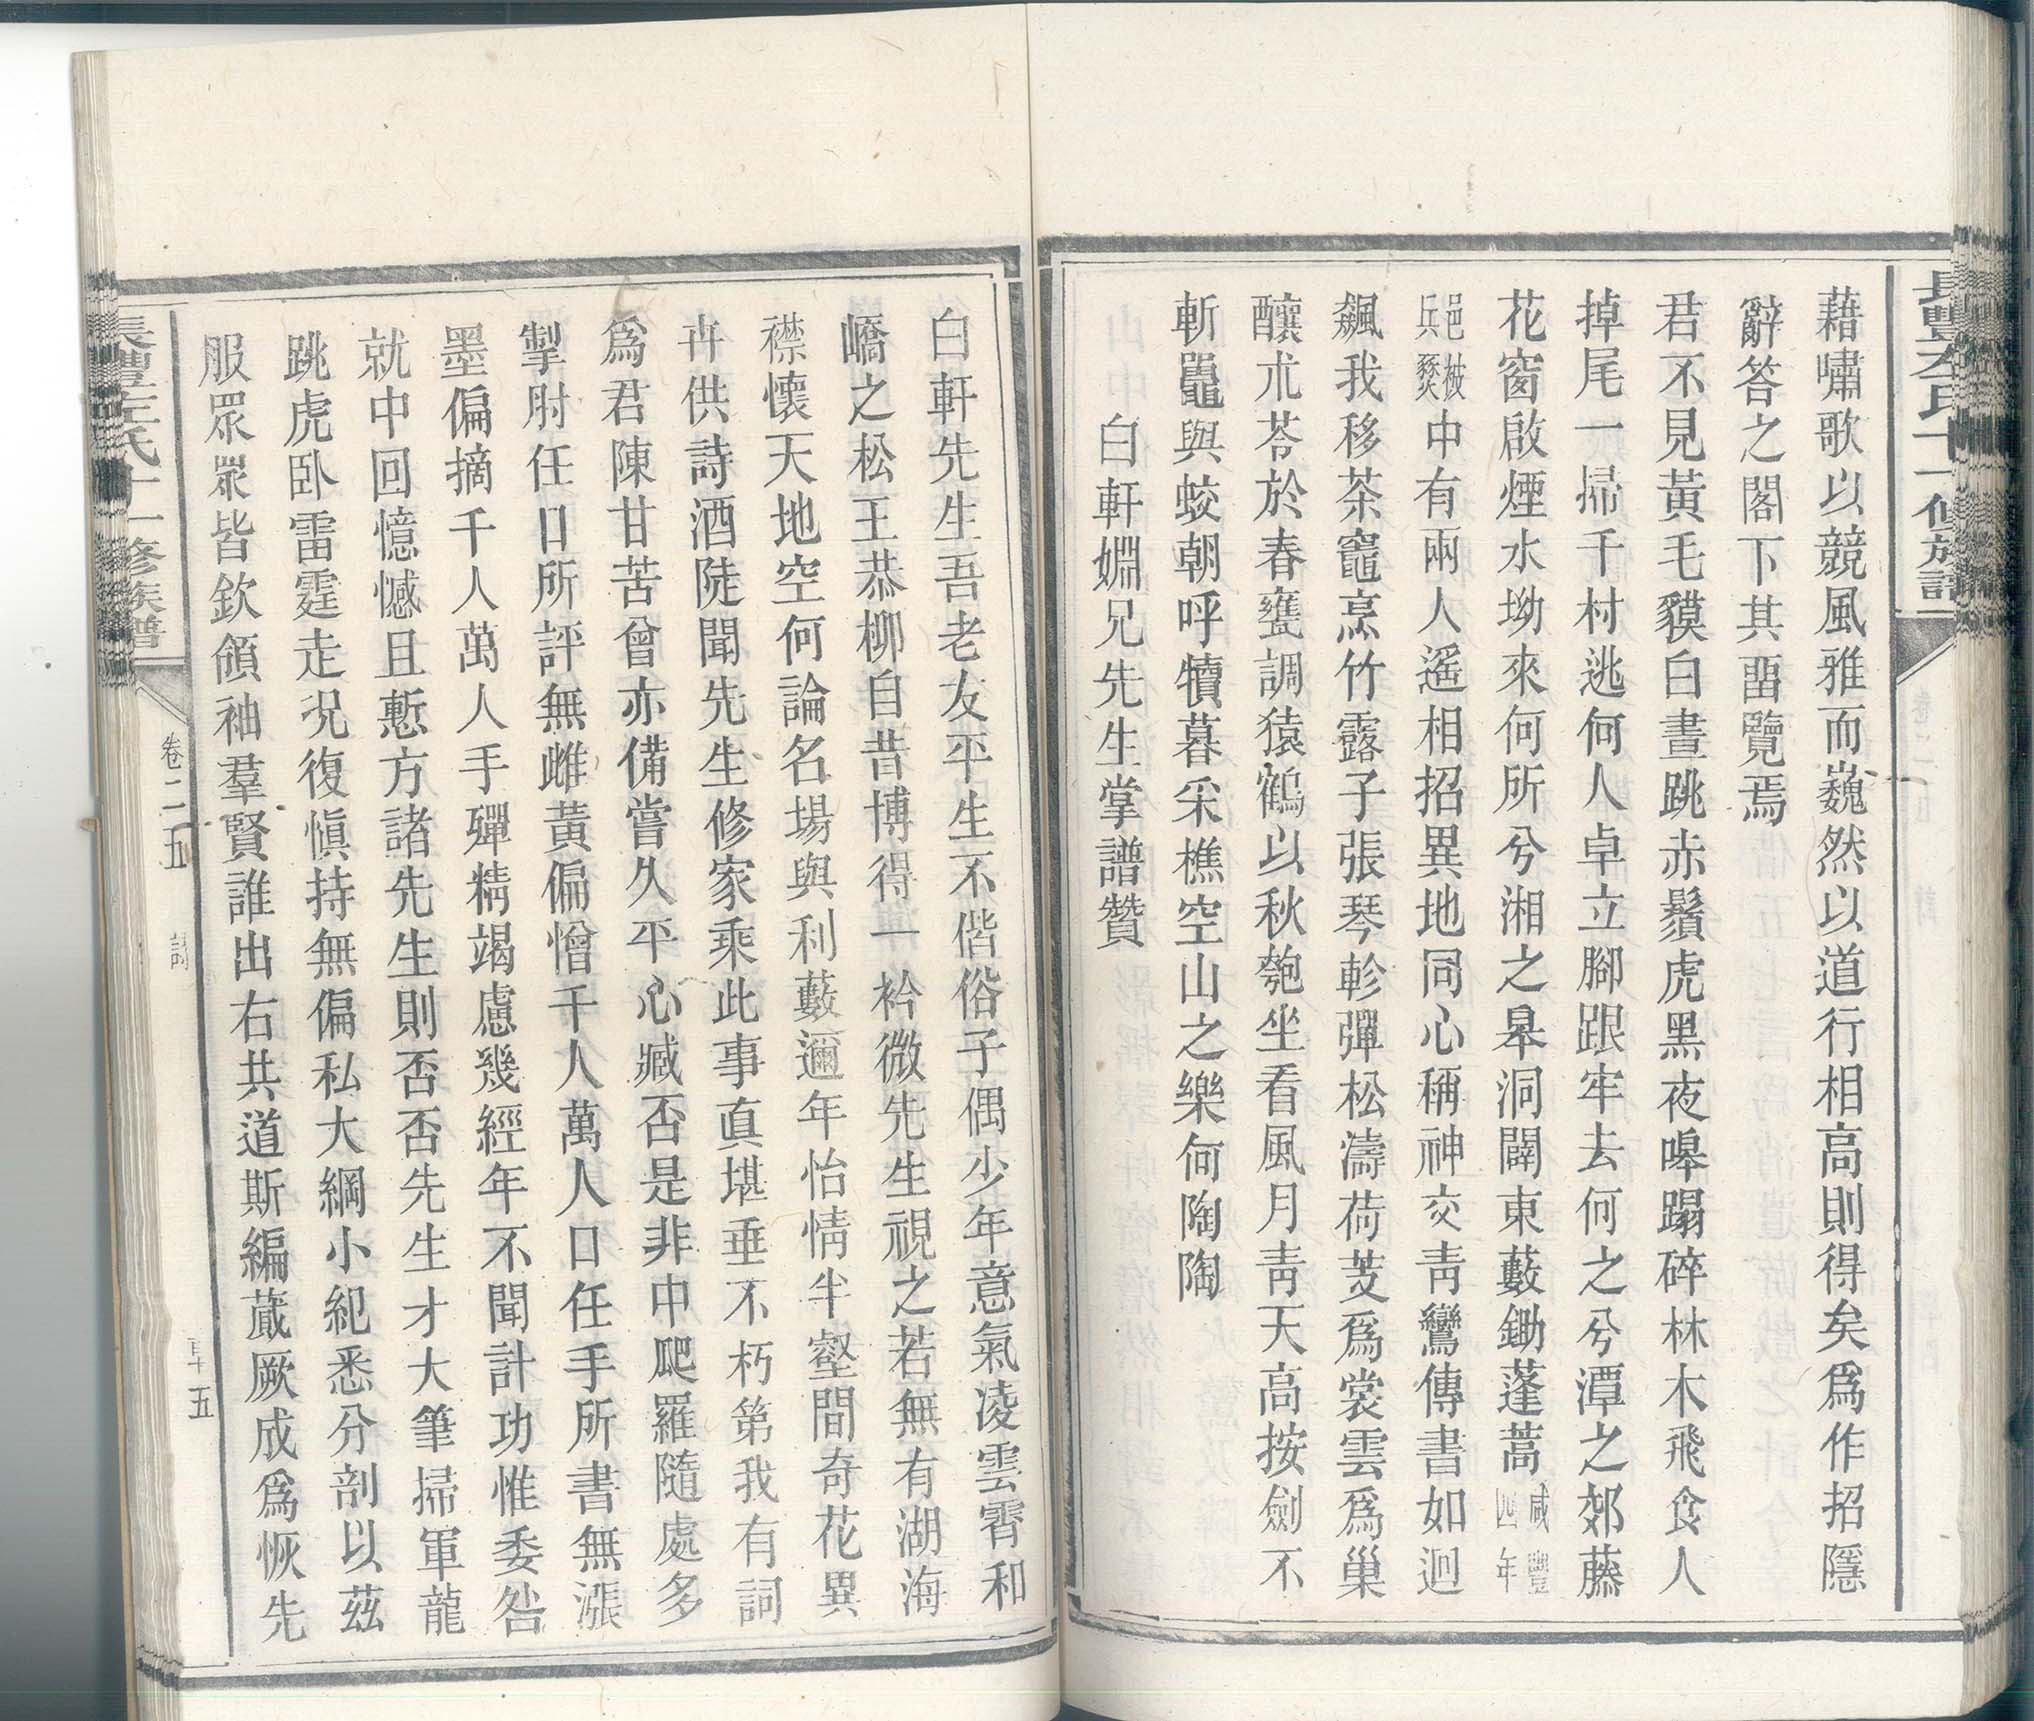 藉嘯歌以競風雅而巍然以道行相高則得矣爲作招隱
辭答之閣下其畱覽焉
君不見黃毛貘白晝跳赤鬚虎黑夜嘷蹋碎林木飛食人
掉尾一掃千村逃何人卓立腳跟牢去何之兮潭之郊藤
花窗啟煙水坳來何所兮湘之皋洞闢東藪鋤蓬蒿咸豐四年
邑被兵燹中有兩人遙相招異地同心稱神交靑鸞傳書如迴
飆我移茶竈烹竹露子張琴軫彈松濤荷芰爲裳雲爲巢
釀朮苓於春甕調猿鶴以秋匏坐看風月靑天高按劍不
斬鼉與蛟朝呼犢暮采樵空山之樂何陶陶
白軒婣兄先生掌譜贊
白軒先生吾老友平生不偕俗子偶少年意氣凌雲霄和
嶠之松王恭柳自昔博得一衿微先生視之若無有湖海
襟懷天地空何論名場與利藪邇年怡情半壑間奇花異
卉供詩酒陡聞先生修家乘此事真堪垂不朽第我有詞
爲君陳甘苦曾亦備嘗久平心臧否是非中爬羅隨處多
掣肘任口所評無雌黃偏憎千人萬人口任手所書無漲
墨偏摘千人萬人手殫精竭慮幾經年不聞計功惟委咎
就中回憶憾且慙方諸先生則否否先生才大筆掃軍龍
跳虎臥雷霆走況復愼持無偏私大綱小紀悉分剖以茲
服眾眾皆欽領袖羣賢誰出右共道斯編蕆厥成爲恢先
長豐左氏十一修族譜
卷二五